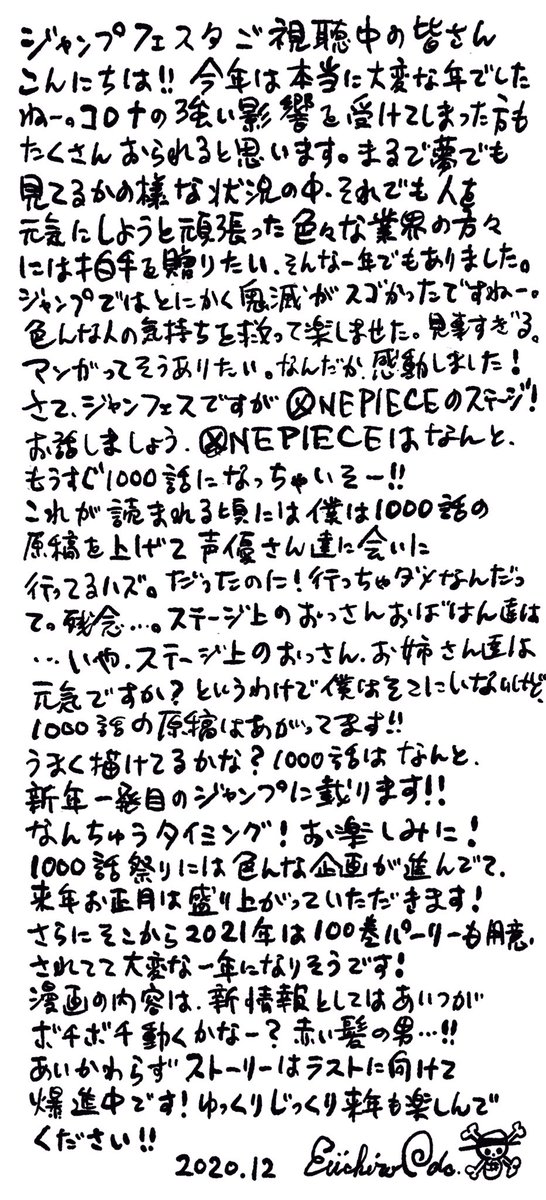 ジャンプフェスタご視聴中の皆さん
こんにちは!! 今年は本当に大変な年でした
ねー。コロナの強い影響を受けてしまった方も
たくさんおられると思います。まるで夢でも
見てるかの様な状況の中、それでも人を
元気にしようと頑張った色々な業界の方々
には拍手を贈りたい、そんな一年でもありました。
ジャンプではとにかく鬼滅がスゴかったですねー。
色んな人の気持ちを救って楽しませた。見事すぎる。
マンガってそうありたい。なんだか感動しました!
さて、ジャンフェスですがONE PIECEのステージ!
お話しましょう、ONE PIECEはなんと、
もうすぐ1000話になっちゃいそー!!
これが読まれる頃には僕は1000話の
原稿を上げて声優さん達に会いに
行ってるハズ。だったのに!行っちゃダメなんだっ
て。残念…。ステージ上のおっさんおばはん達は
…いや、ステージ上のおっさん、お姉さん達は
元気ですか?というわけで僕はそこにいないけど、
1000話の原稿はあがってます!!
うまく描けてるかな?1000話はなんと、
新年一発目のジャンプに載ります!!
なんちゅうタイミング!お楽しみに!
1000話祭りには色んな企画が進んでて、
来年お正月は盛り上がっていただきます!
さらにそこから2021年は100巻パーリーも用意
されてて大変な一年になりそうです!
漫画の内容は、新情報としてはあいつが
ボチボチ動くかなー?赤い髪の男…!!
あいかわらずストーリーはラストに向けて
爆進中です!ゆっくりじっくり来年も楽しんで
ください!!
2020.12 Eiichiro Oda.